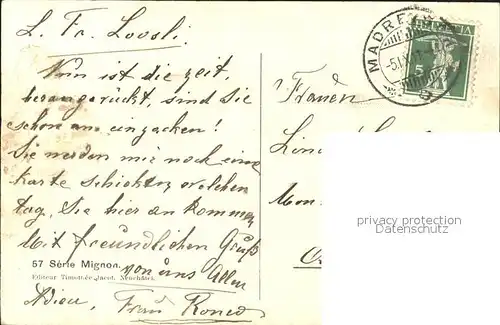 L. Fr. Loosli.
Nun ist die Zeit,
herangerückt, sind Sie
schon am einpacken!
Sie werden mir noch eine
Karte schicken welchen
tag, Sie hier an kommen
Mit freundlichen Gruß
57 Série Mignon.
von uns Allen
Editeur Timothée Jacot, Neuchâtel.
Adieu, Frau
MADRE
HELVETIA
5
Frauen
Mon
privacy protection
Datenschutz